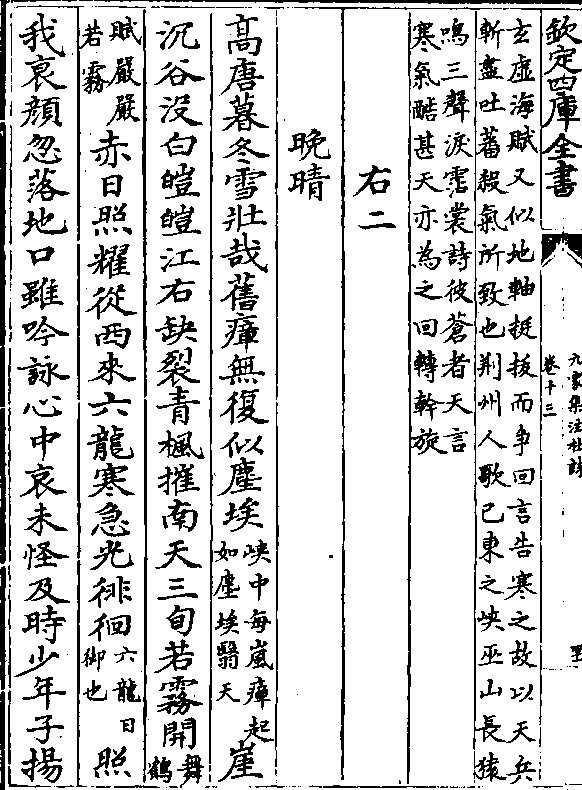 欽定四庫全書
九家集注杜詩
卷十三
玄虚海賦又似地軸挺拔而争回言告寒之故以天兵
斬盡吐蕃殺氣所致也荆州人歌已東之峽巫山長猿
鳴三聲淚霑裳詩彼蒼者天言
寒氣酷甚天亦為之回轉幹旋
右二
晚晴
高唐暮冬雪壯哉舊瘴無復似塵埃峽中每嵐瘴起如塵埃翳天崖
沉谷没白皚皚江右缺裂青楓摧南天三旬若霧開舞鶴
賦嚴嚴若霧赤日照耀從西來六龍寒急光徘徊六龍日御也照
我衰顔忽落地口雖吟詠心中哀未怪及時少年子揚